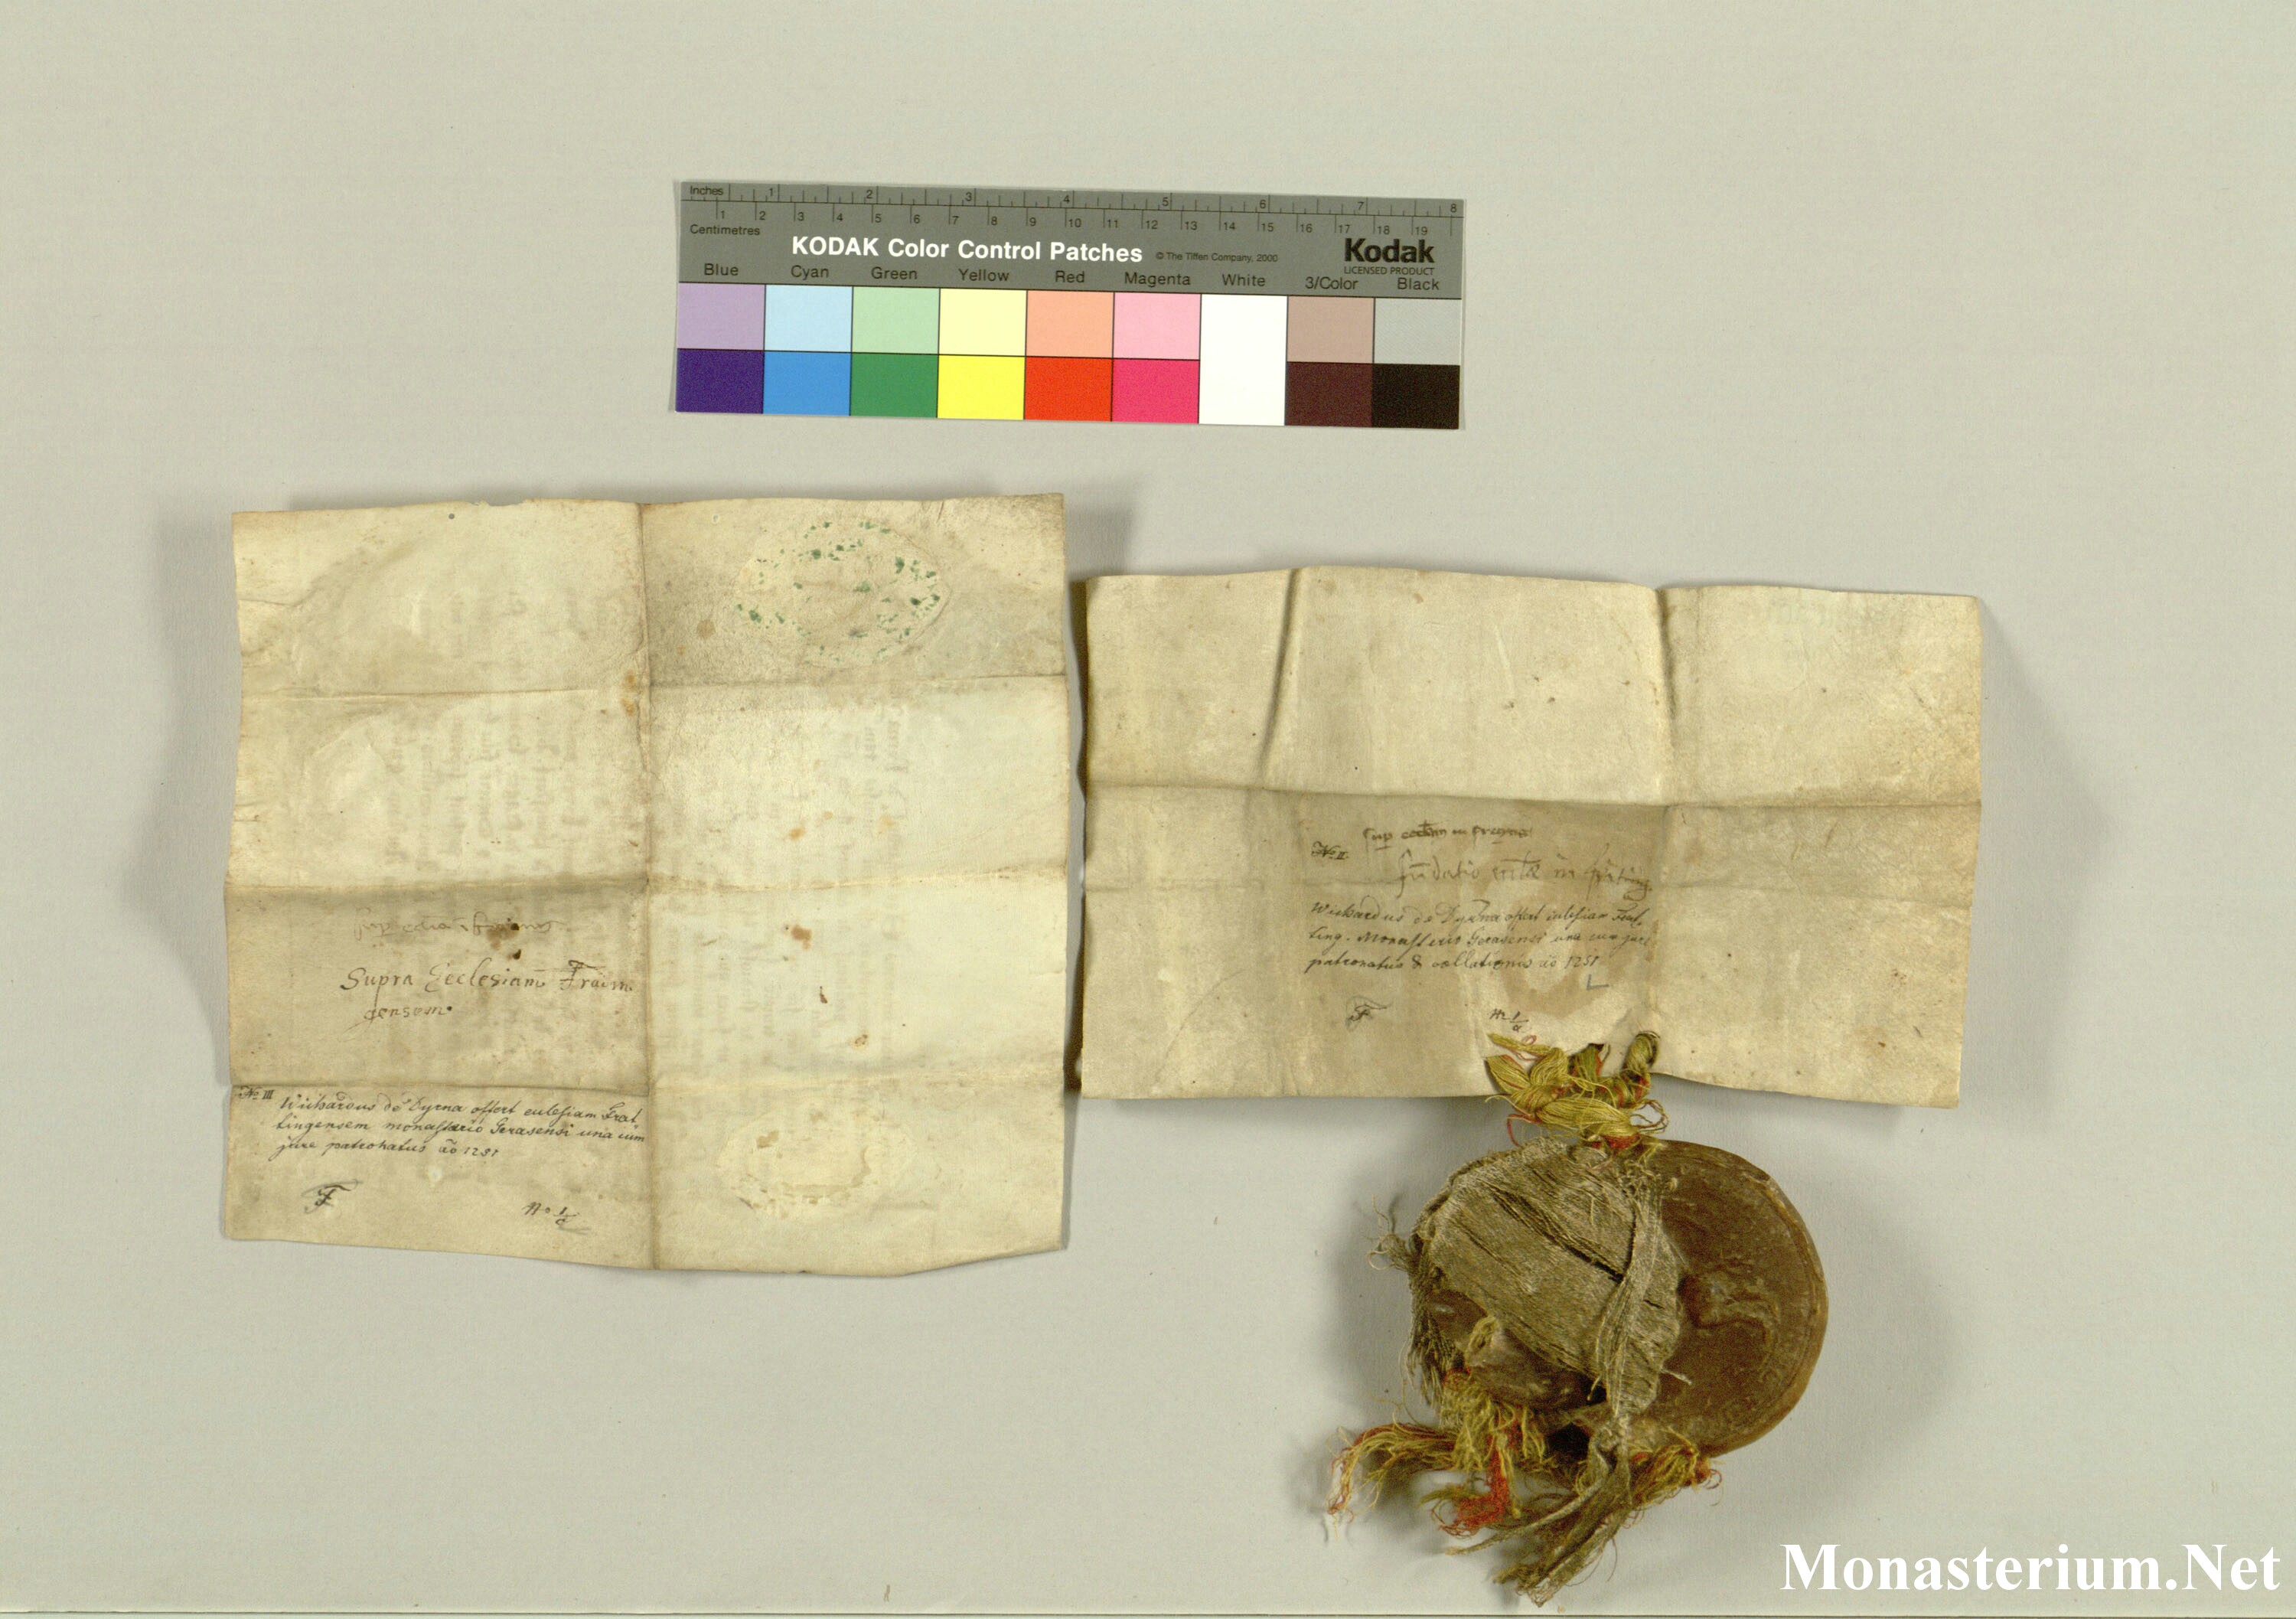 Inches 1 2 3 4 5 6 7 8
1 2 3 4 5 6 7 8 9 10 11 12 13 14 15 16 17 18 19
Centimetres
KODAK Color Control Patches © The Tiffen Company, 2000 Kodak
LICENSED PRODUCT
Blue Cyan Green Yellow Red Magenta White 3/Color Black
Supra Ecclesiam
gensem
No III
Wichardus de Dyrna offert eclesiam Frat
tingensem monasterio Gerasensi una cum
jure patronatus ao 1281
F
No 1/a
sup
No II
fundatio in
Wichardus de Dyrna offert eclesiam Frat-
ting. Monasterio Gerasensi una cum jure
patronatus & collationis ao 1281
F
No 1/a
Monasterium.Net